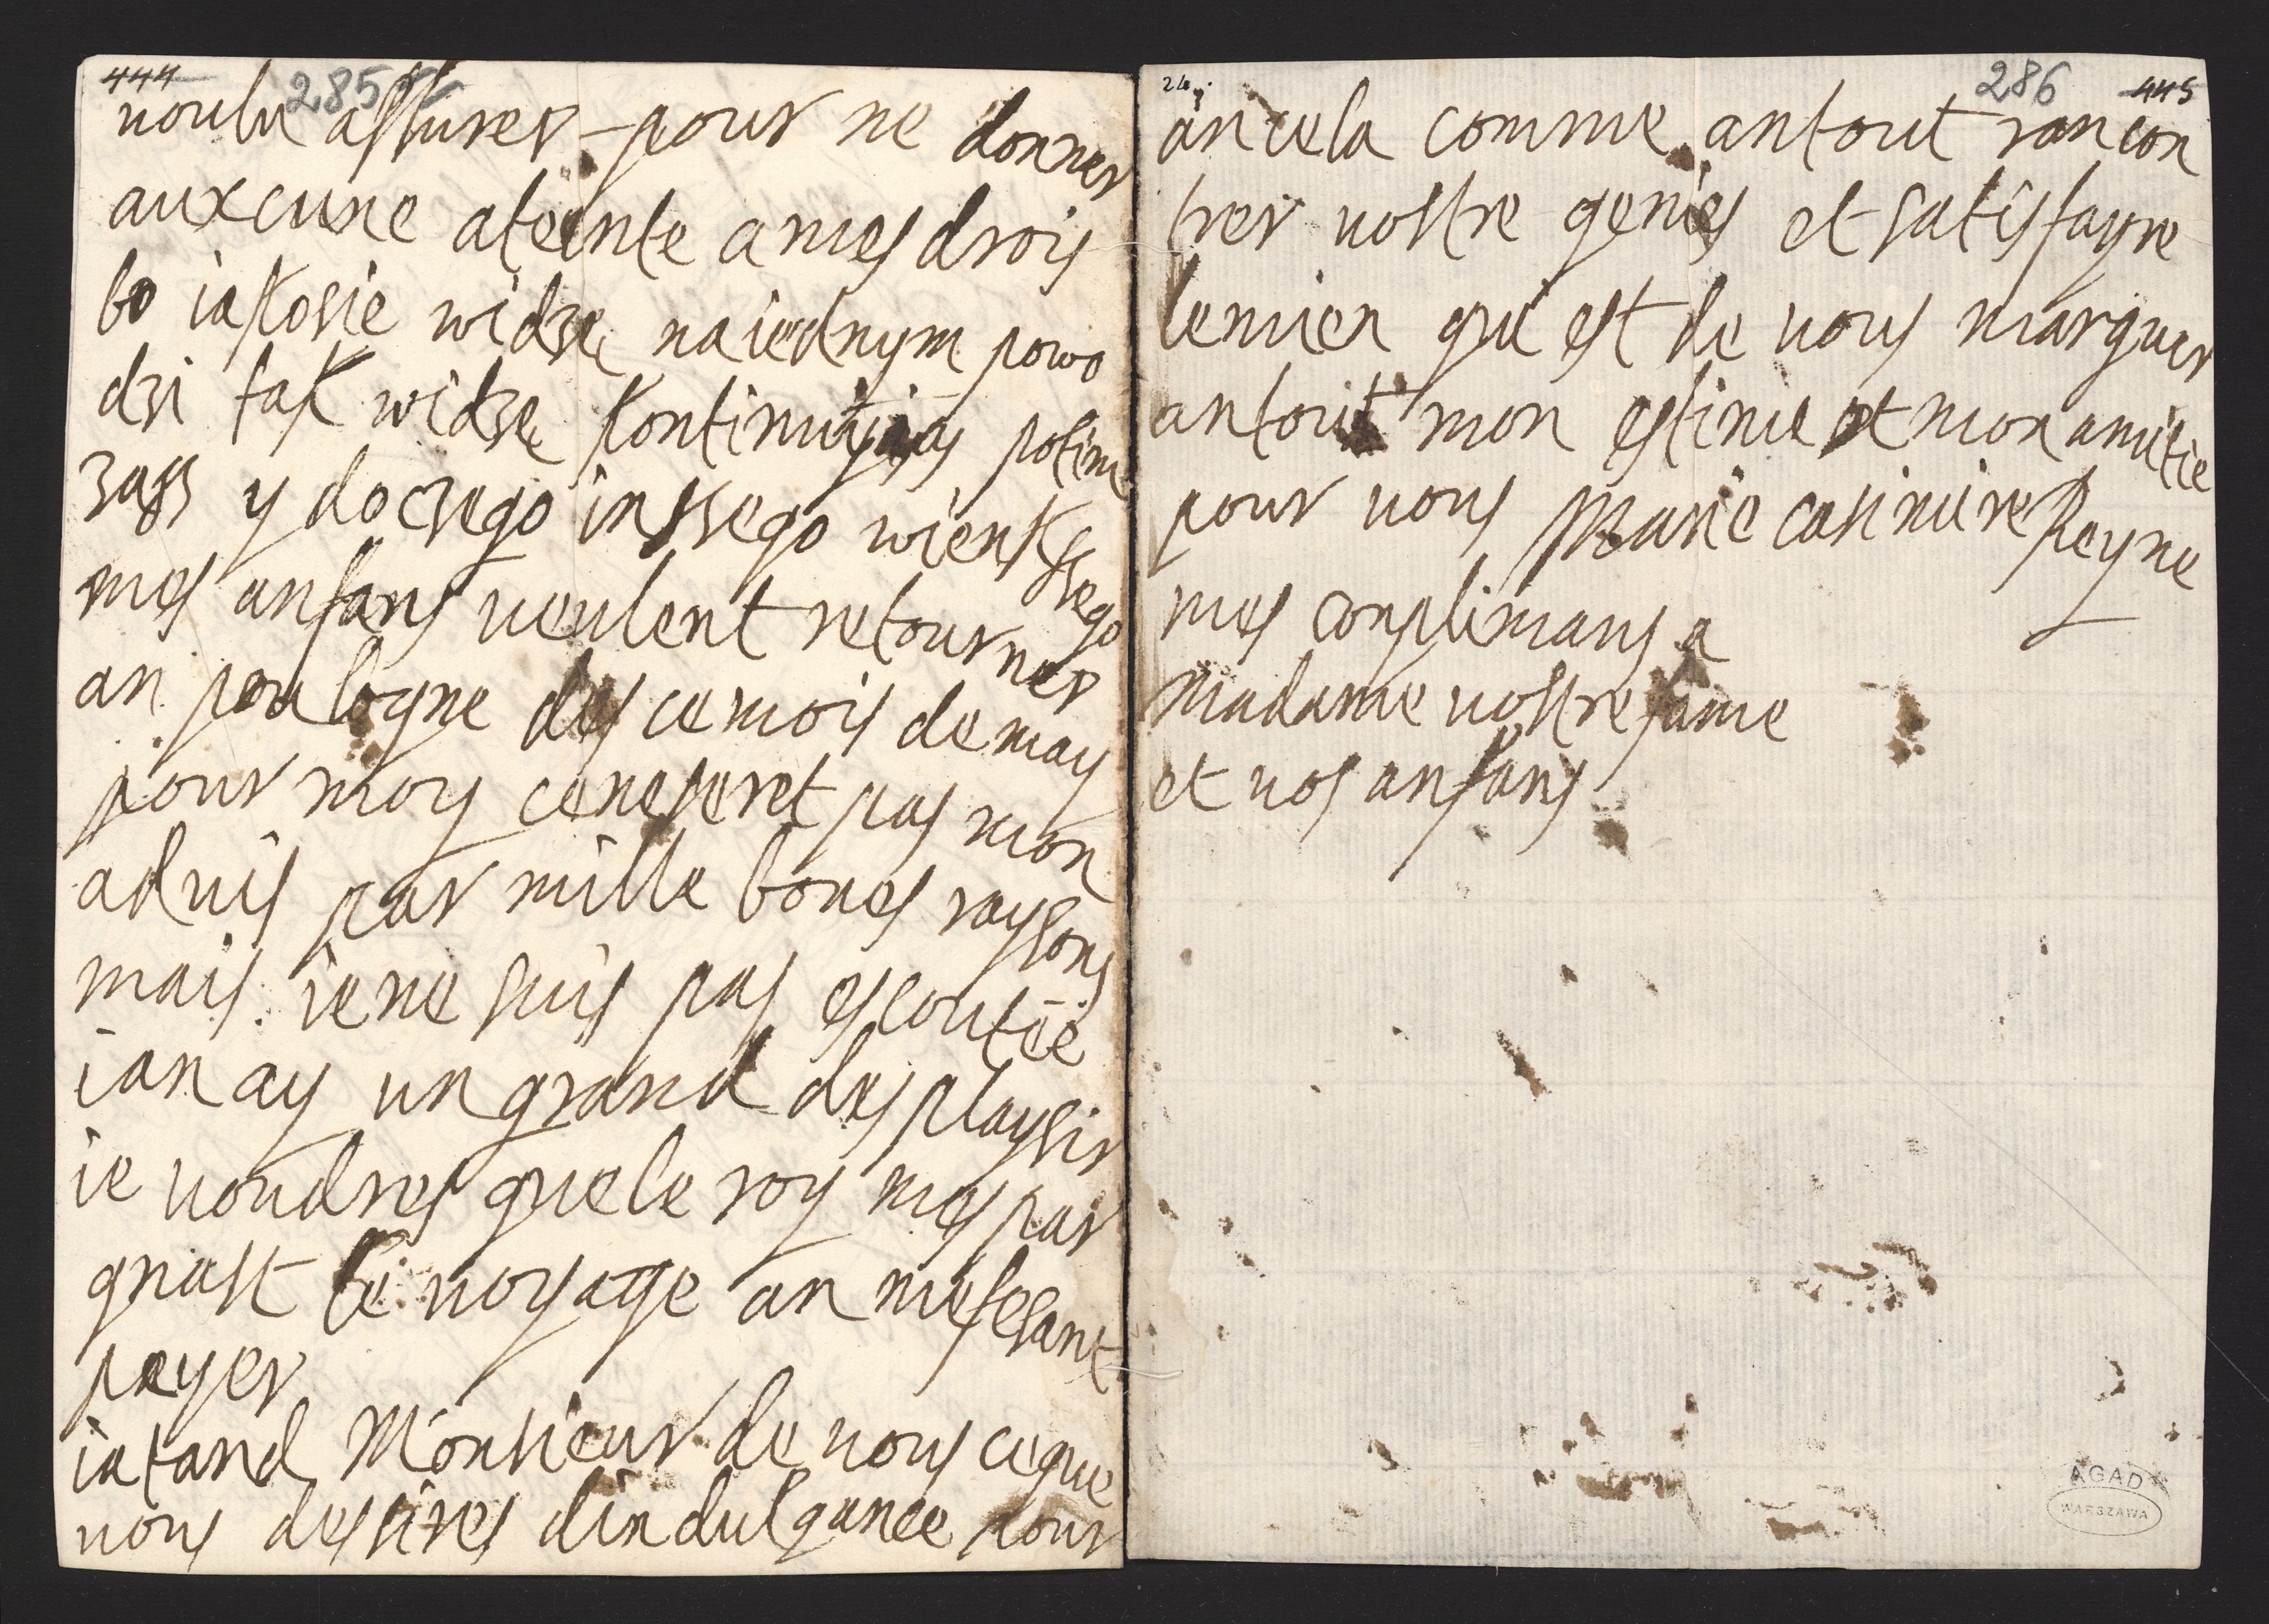 444 285
voulu assurer pour ne donner
auxcune ateinte a mes drois
bo iakosie widze na iednym powo
dzi tak widze potim
zass y do czego inszego wienkszego
mes anfans veulent retourner
an poulogne des ce mois de may
pour moy ce ne seret pas mon
advis par mille bones raysons
mais ie ne suis pas escoutée
ian ay un grand desplaysir
ie voudres que le roy mespar
gnast le voyage an me fesant
payer
iatand Monsieur de vous ce que
vous desires dindulgance pour
286 445
an cela comme an tout rancon
trer vostre genies et satisfayre
le mien qui est de vous marquer
an tout mon estime et mon amitie
pour vous Marie casimire Reyne
mes conplimans a
madame vostre fame
et vos anfans
AGAD
WARSZAWA